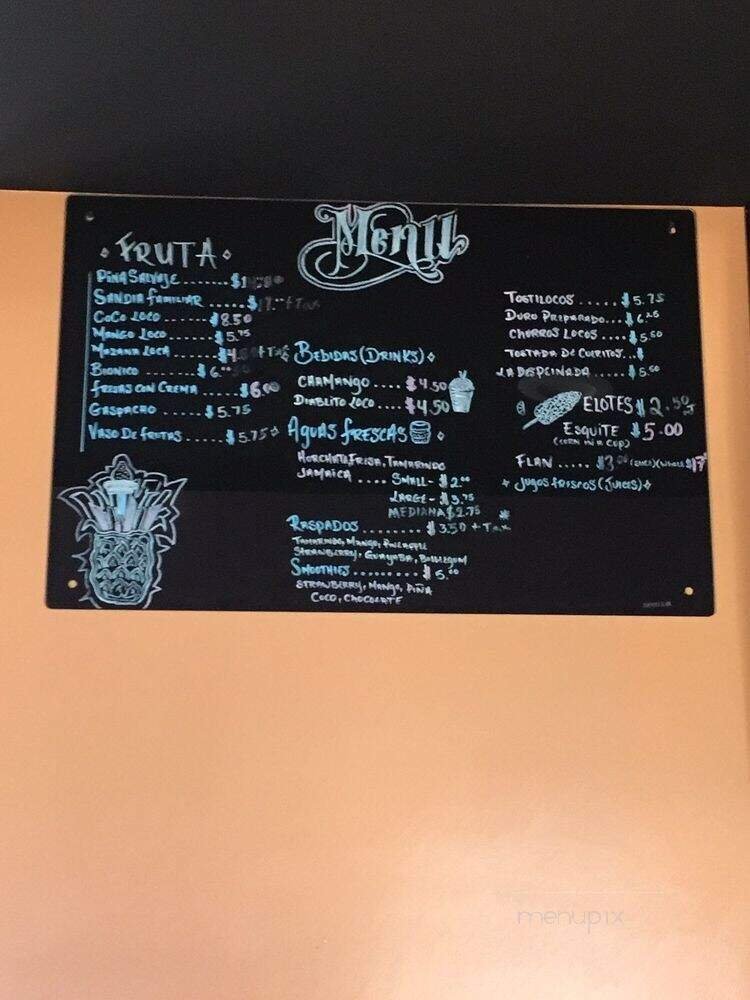 Menu
FRUTA
PIÑA SALVAJE.......$1
SANDIA FAMILIAR ......$17.00 + Tax
COCO LOCO ........$8.50
MANGO LOCO........$5.75
MAZANA LOCA........$4. + Tax
BIONICO ........$6.
FRESAS CON CREMA.....$6.00
GASPACHO ........$5.75
VASO DE FRUTAS ......$5.75
BEBIDAS (DRINKS)
CHAMANGO .... $4.50
DIABLITO LOCO.... $4.50
AGUAS FRESCAS
HORCHATA, FRESA, TAMARINDO
JAMAICA .... SMALL- $2.00
LARGE- $3.75
MEDIANA $2.75
RASPADOS ......... $3.50 + TAX
TAMARINDO, MANGO, PINEAPPLE
STRAWBERRY, GUAYABA, BUBBLEGUM
SMOOTHIES......... $5.00
STRAWBERRY, MANGO, PIÑA
COCO, CHOCOLATE
TOSTILOCOS ..... $5.75
DURO PREPARADO... $6.25
CHURROS LOCOS .... $5.50
TOSTADA DE CUERITOS.. $
LA DESPEINADA ..... $5.50
ELOTES $2.50
ESQUITE $5.00
(CORN IN A CUP)
FLAN ..... $3.00 (WHOLE $17
JUGOS FRISCOS (JUICES)
menupix